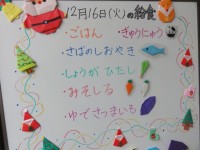 12月16日(火)の給食
・ごはん ・ぎゅうにゅう
・さばのしおやき
・しょうが ひたし
・みそしる
・ゆでさつまいも